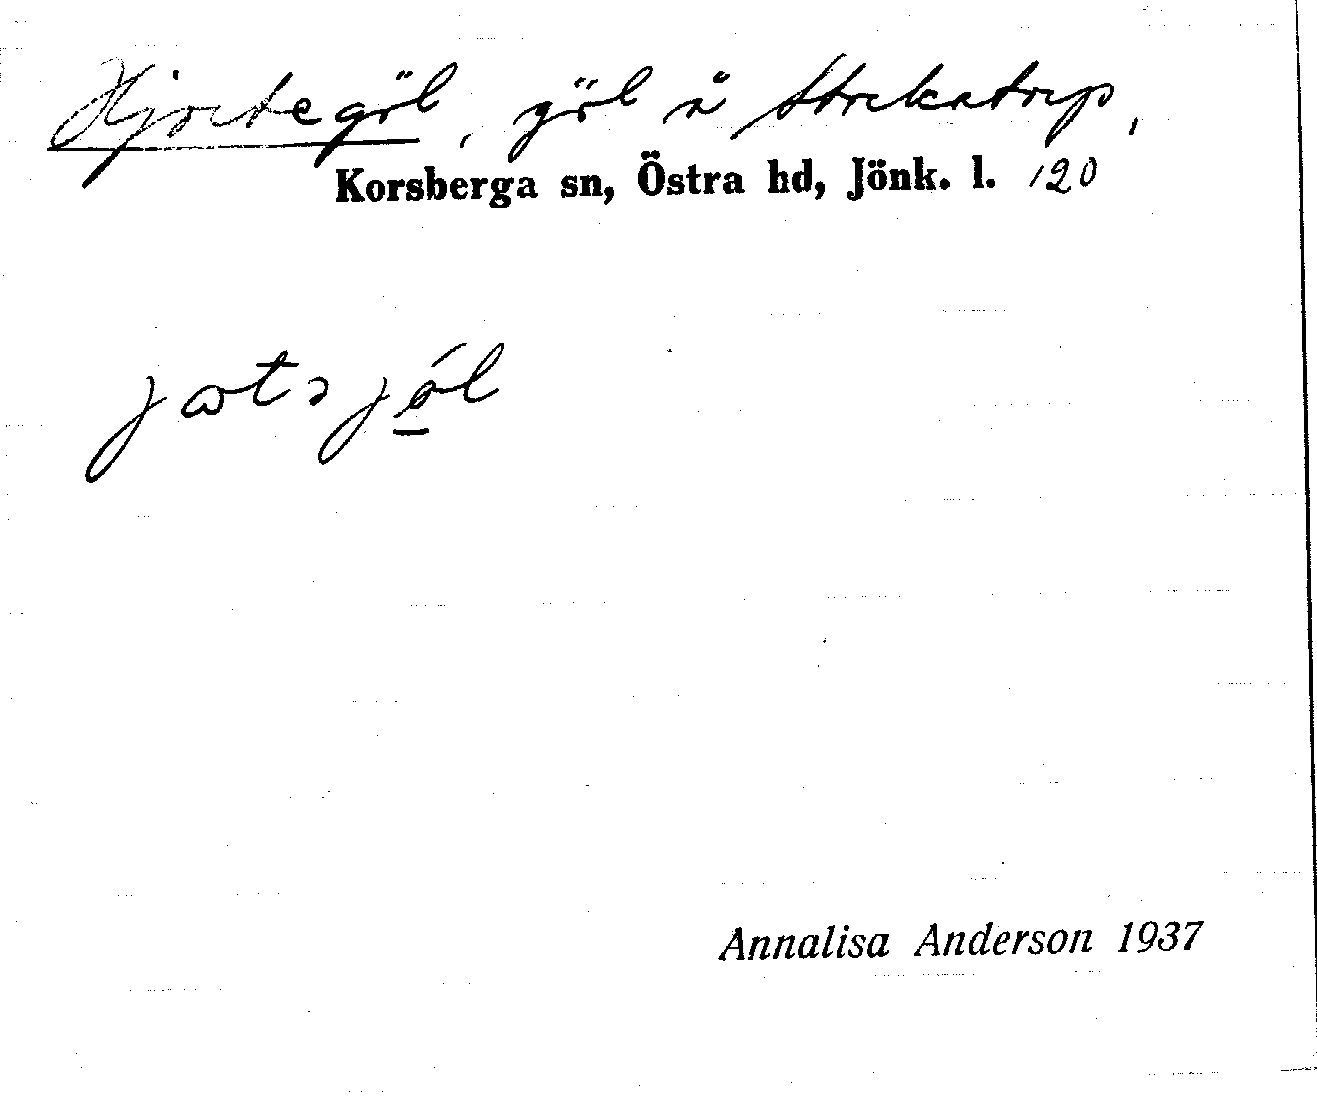 Hjortegöl, göl å Stockatorp,
Korsberga sn, Östra hd, Jönk. l. 120
jɷtəjǿl
Annalisa Anderson 1937